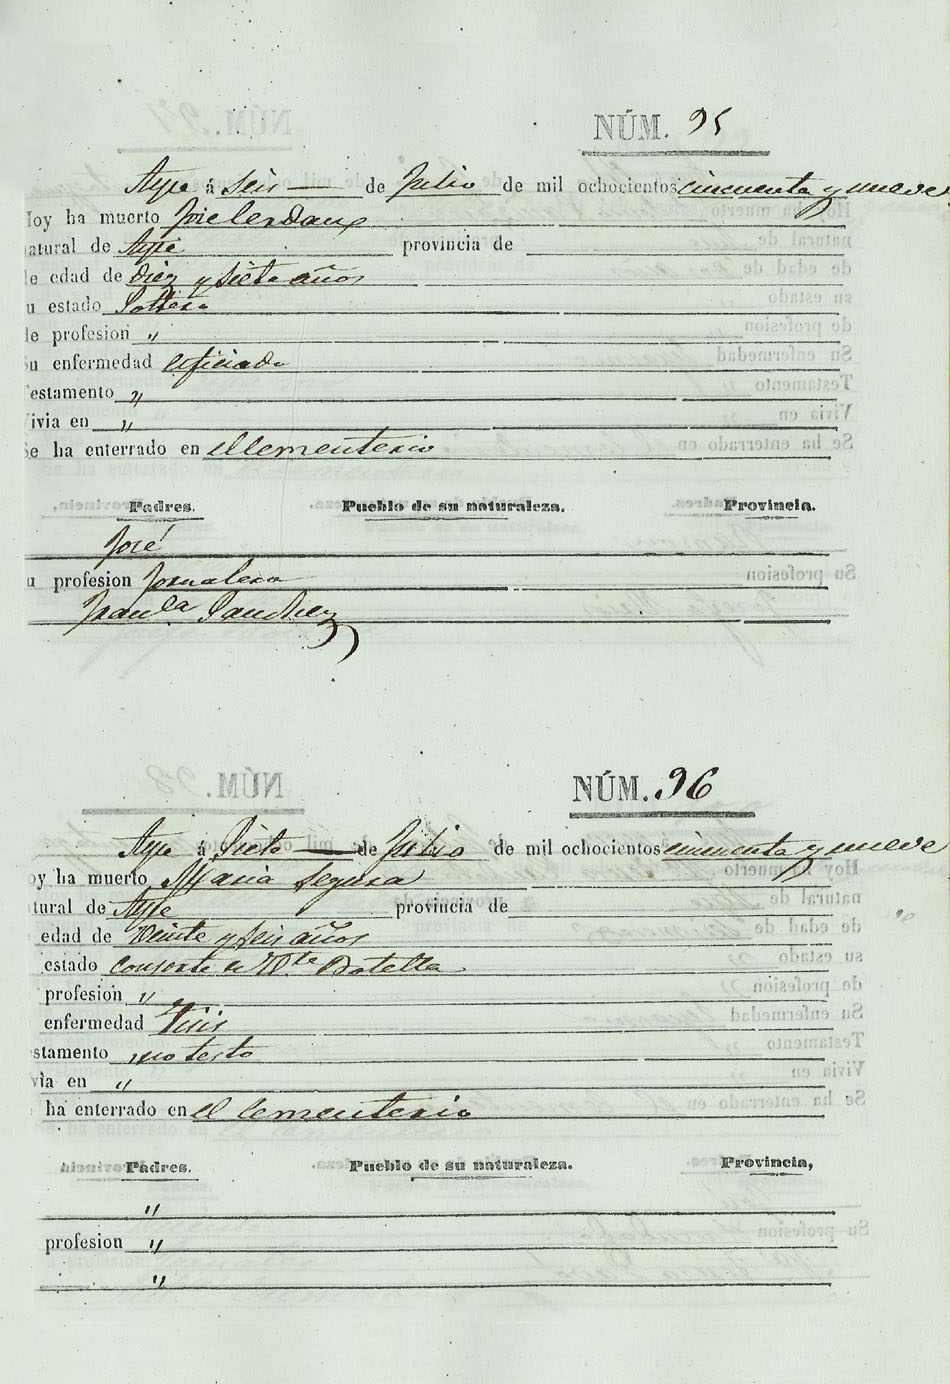 NÚM. 95
Aspe á Seis de Julio de mil ochocientos cincuenta y nueve
Hoy ha muerto José Cerdan
natural de Aspe provincia de
de edad de diez y siete años
su estado Soltero
de profesion "
Su enfermedad
Testamento "
Vivia en "
Se ha enterrado en el Cementerio
Padres. Pueblo de su naturaleza. Provincia.
José
Su profesion Jornalero
Fran.ca Sanchez
NÚM. 96
Aspe á Siete de Julio de mil ochocientos cincuenta y nueve
oy ha muerto Maria Segura
tural de Aspe provincia de
edad de Veinte y seis años
estado Consorte de Botella
profesion "
enfermedad Tisis
stamento no testo
via en "
ha enterrado en el Cementerio
Padres. Pueblo de su naturaleza. Provincia,
"
profesion "
"